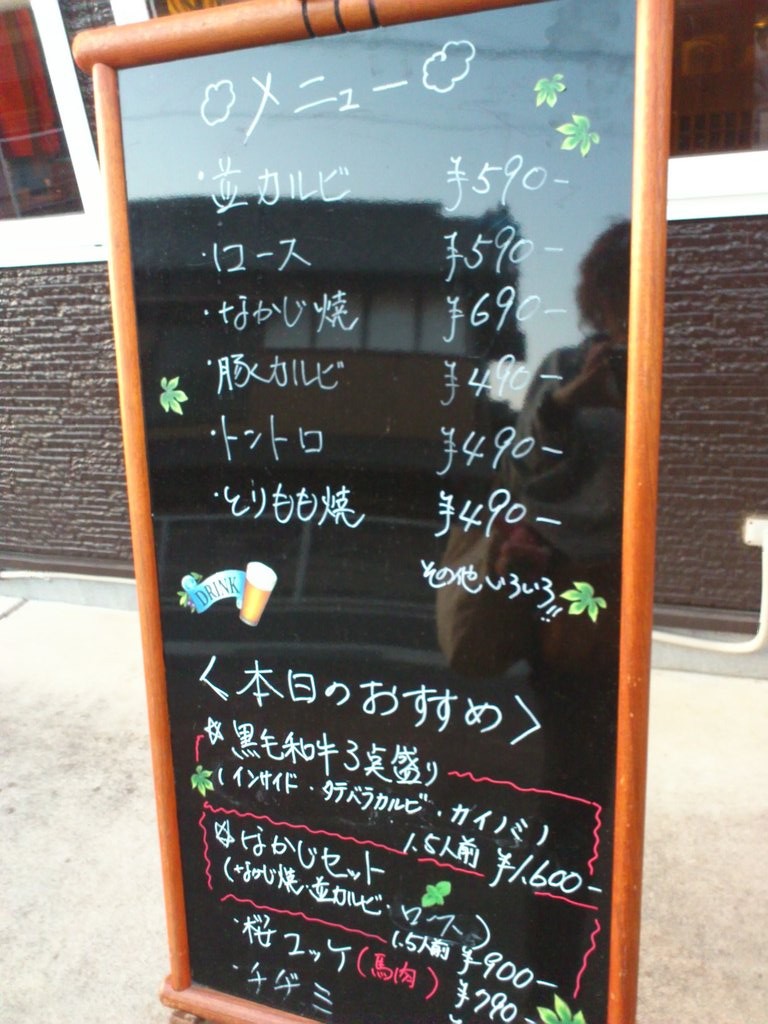 メニュー
・並カルビ ¥590-
・ロース ¥590-
・なかじ焼 ¥690-
・豚カルビ ¥490-
・トントロ ¥490-
・とりもも焼 ¥490-
その他いろいろ!!
DRINK
<本日のおすすめ>
☆黒毛和牛3点盛り
(インサイド・タテバラカルビ・カイノミ)
1.5人前 ¥1.600-
☆なかじセット
(なかじ焼・並カルビ・ロース)
1.5人前 ¥900-
・桜ユッケ(馬肉) ¥790-
・チヂミ